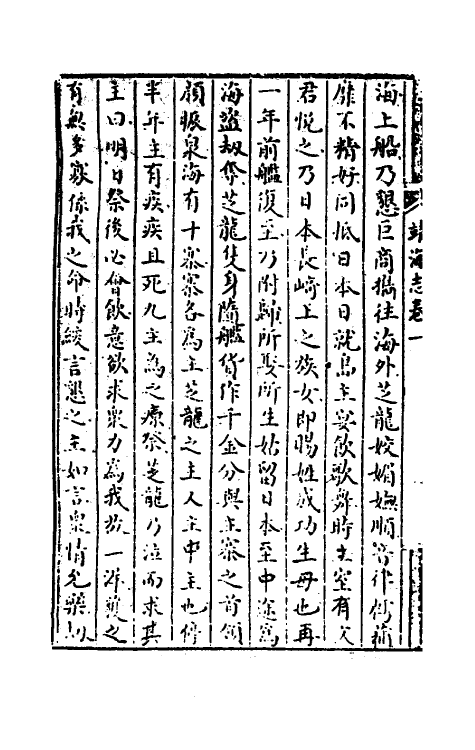 靖海志卷一
海上船乃懇巨商攜往海外芝龍姣媚嫵順審律樗蒲
靡不精好同抵日本日就島主宴飲歌舞時主室有文
君悅之乃日本長崎王之族女即賜姓成功生母也再
一年前艦復至乃附歸所娶所生姑留日本至中途為
海盜劫奪芝龍隻身隨艦貨作千金分與主寨之首領
頎振泉海有十寨寨各為主芝龍之主人主中主也停
半年主有疾疾且死九主為之療祭芝龍乃泣而求其
主曰明日祭後必會飲意欲求眾力為我放一洋獲之
有無多寡係我之命時緩言懇之主如言眾情允藥劫